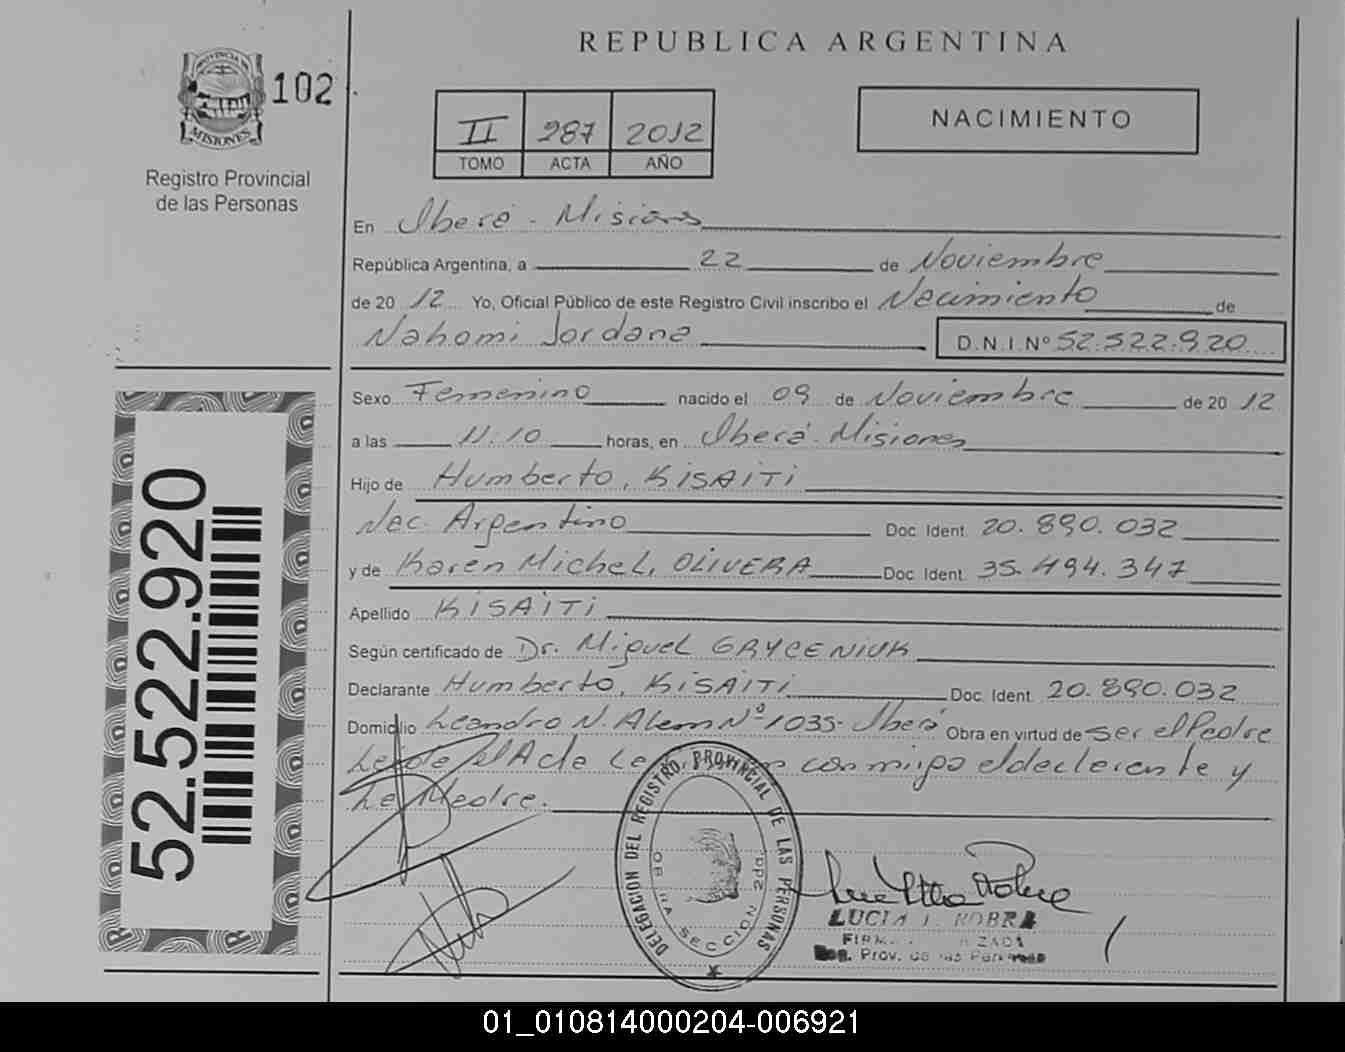 REPUBLICA ARGENTINA
PROVINCIA DE
MISIONES
102
Registro Provincial
de las Personas
II 287 2012
TOMO ACTA AÑO
NACIMIENTO
En Oberá - Misiones
República Argentina, a 22 de Noviembre
de 20 12 Yo, Oficial Público de este Registro Civil inscribo el Nacimiento de
Nahomi Jordana D.N.I.Nº 52.522.920
Sexo Femenino nacido el 09 de Noviembre de 20 12
a las 11.10 horas, en Oberá - Misiones
Hijo de Humberto, KISAITI
Nac. Argentino Doc. Ident. 20.890.032
y de Karen Michel, OLIVERA Doc. Ident. 35.494.347
Apellido KISAITI
Según certificado de Dr. Miguel GRYCENIUK
Declarante Humberto, KISAITI Doc. Ident. 20.890.032
Domicilio Leandro N. Alem Nº 1035 - Oberá Obra en virtud de ser el Padre
Leída el Acta La conmigo el declarante y
La Madre.
52.522.920
DELEGACION DEL REGISTRO PROVINCIAL DE LAS PERSONAS
SECCION 2da.
LUCIA
Reg. Prov. de las Personas
01_010814000204-006921